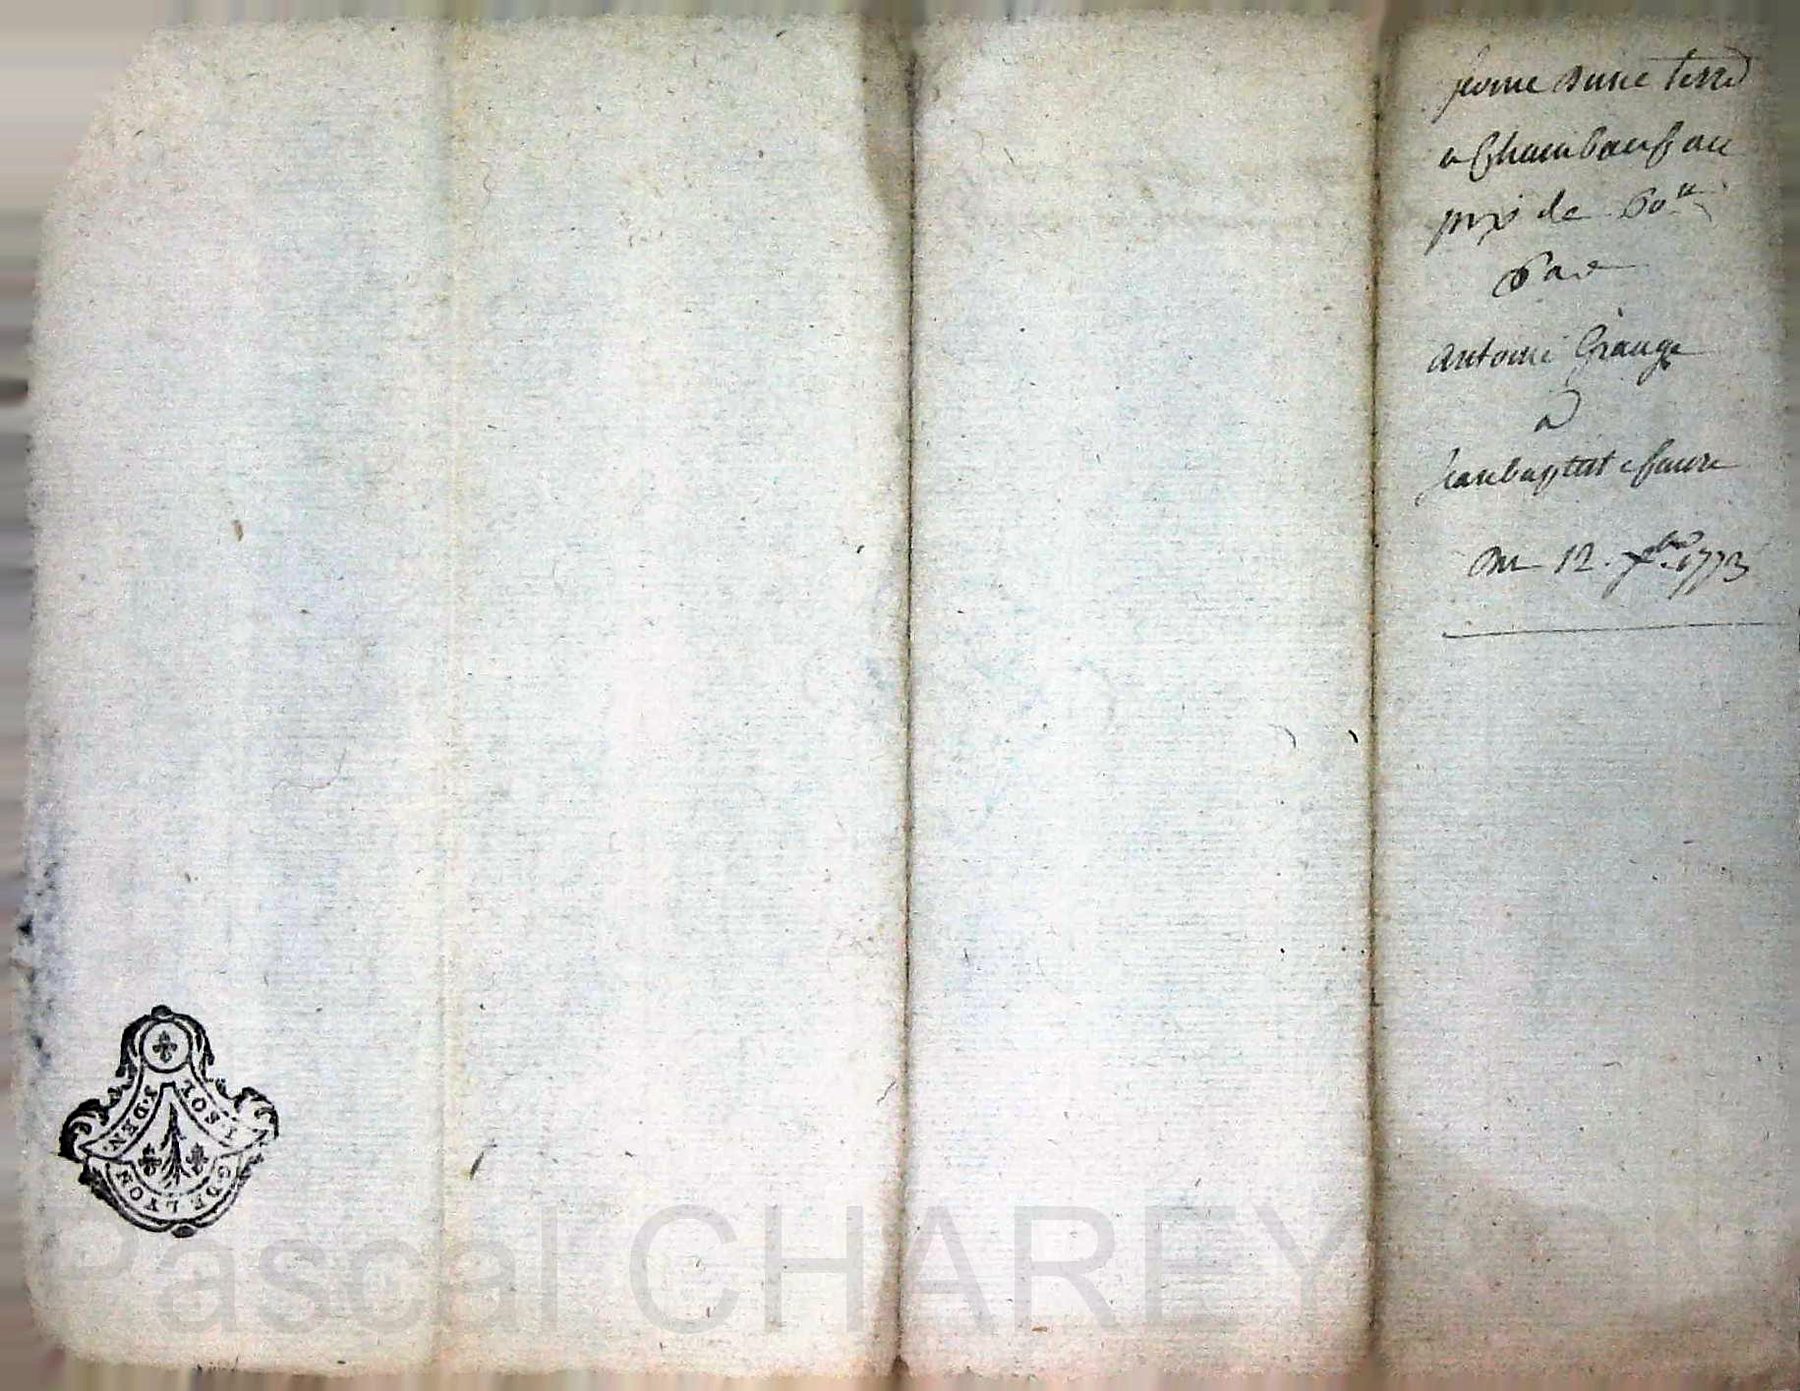 ferme d'une terre
a Chambeuf au
prix de 60 ₶
Par
Antoine Grange
a
Jean baptiste faure
Du 12. xbre 1773
I. SOL
3. DEN.
G. DE LYON
Pascal CHAREY